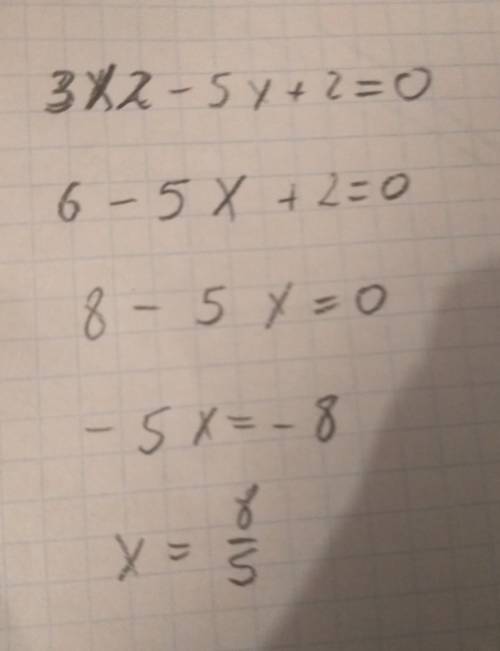 3x2 - 5x + 2 = 0
6 - 5x + 2 = 0
8 - 5x = 0
-5x = -8
x = 8/5